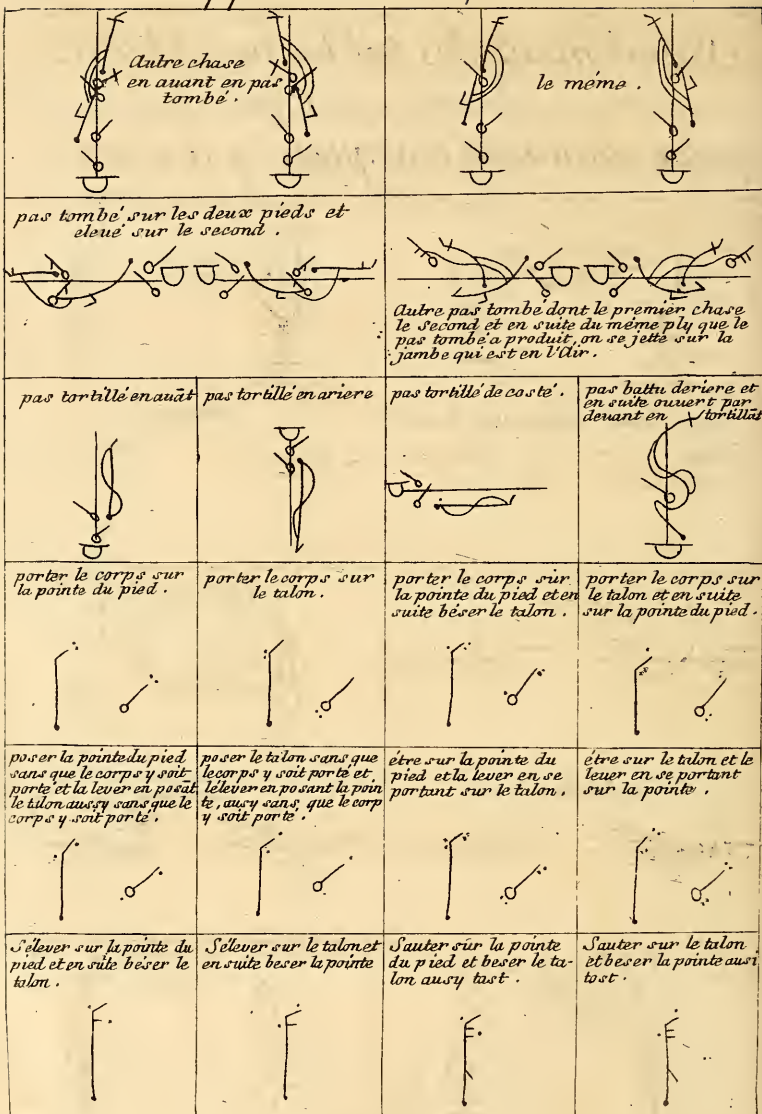 Autre chase
en auant en pas
tombé .
le méme .
pas tombé sur les deux pieds et
eleué sur le second .
Autre pas tombé dont le premier chase
le second et en suite du méme ply que le
pas tombé a produit, on se jette sur la
jambe qui est en l'Air .
pas tortillé en auāt
pas tortillé en ariere
pas tortillé de costé .
pas battu deriere et
en suite ouuert par
deuant en tortillāt
porter le corps sur
la pointe du pied .
porter le corps sur
le talon .
porter le corps sur
la pointe du pied et en
suite béser le talon .
porter le corps sur
le talon et en suite
sur la pointe du pied .
poser la pointe du pied
sans que le corps y soit
porté et la lever en posāt
le talon aussy sans que le
corps y soit porté .
poser le talon sans que
le corps y soit porté et
lélever en posant la poin
te, ausy sans, que le corp
y soit porté .
étre sur la pointe du
pied et la lever en se
portant sur le talon .
étre sur le talon et le
leuer en se portant
sur la pointe .
S'élever sur la pointe du
pied et en suite béser le
talon .
S'élever sur le talon et
en suite beser la pointe
Sauter sur la pointe
du pied et beser le ta-
lon ausy tast .
Sauter sur le talon
et beser la pointe ausi
tost .